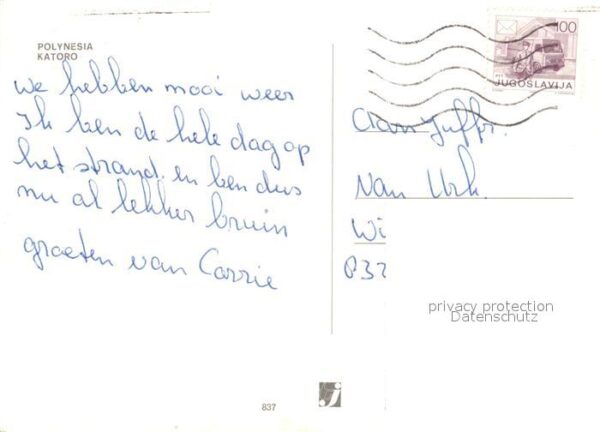 POLYNESIA
KATORO
we hebben mooi weer
Ik ben de hele dag op
het strand. en ben dus
nu al lekker bruin
groeten van Corrie
100
JUGOSLAVIJA
Aan Juffr.
van Urk.
Wi
837
privacy protection
Datenschutz